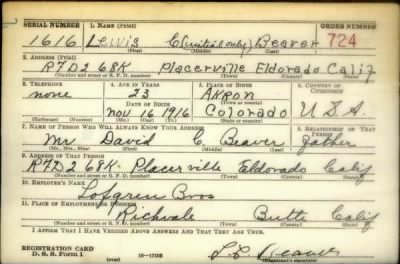 SERIAL NUMBER 1. NAME (Print) ORDER NUMBER
1616 Lewis C(initial only) Beaver 724
(First) (Middle) (Last)
2. ADDRESS (Print)
RFD2 68K Placerville Eldorado Calif
(Number and street or R. F. D. number) (Town) (County) (State)
3. TELEPHONE 4. AGE IN YEARS 5. PLACE OF BIRTH 6. COUNTRY OF CITIZENSHIP
none 23 Akron
DATE OF BIRTH (Town or county)
Nov 16 1916 Colorado U.S.A.
(Exchange) (Number) (Mo.) (Day) (Yr.) (State or country)
7. NAME OF PERSON WHO WILL ALWAYS KNOW YOUR ADDRESS 8. RELATIONSHIP OF THAT PERSON
Mr David C Beaver father
(Mr., Mrs., Miss) (First) (Middle) (Last)
9. ADDRESS OF THAT PERSON
RFD2 68K. Placerville Eldorado Calif
(Number and street or R. F. D. number) (Town) (County) (State)
10. EMPLOYER'S NAME
Lofgren Bros
11. PLACE OF EMPLOYMENT OR BUSINESS
Richvale Butte Calif
(Number and street or R. F. D. number) (Town) (County) (State)
I AFFIRM THAT I HAVE VERIFIED ABOVE ANSWERS AND THAT THEY ARE TRUE.
REGISTRATION CARD
D. S. S. Form 1 (over) 16-17105